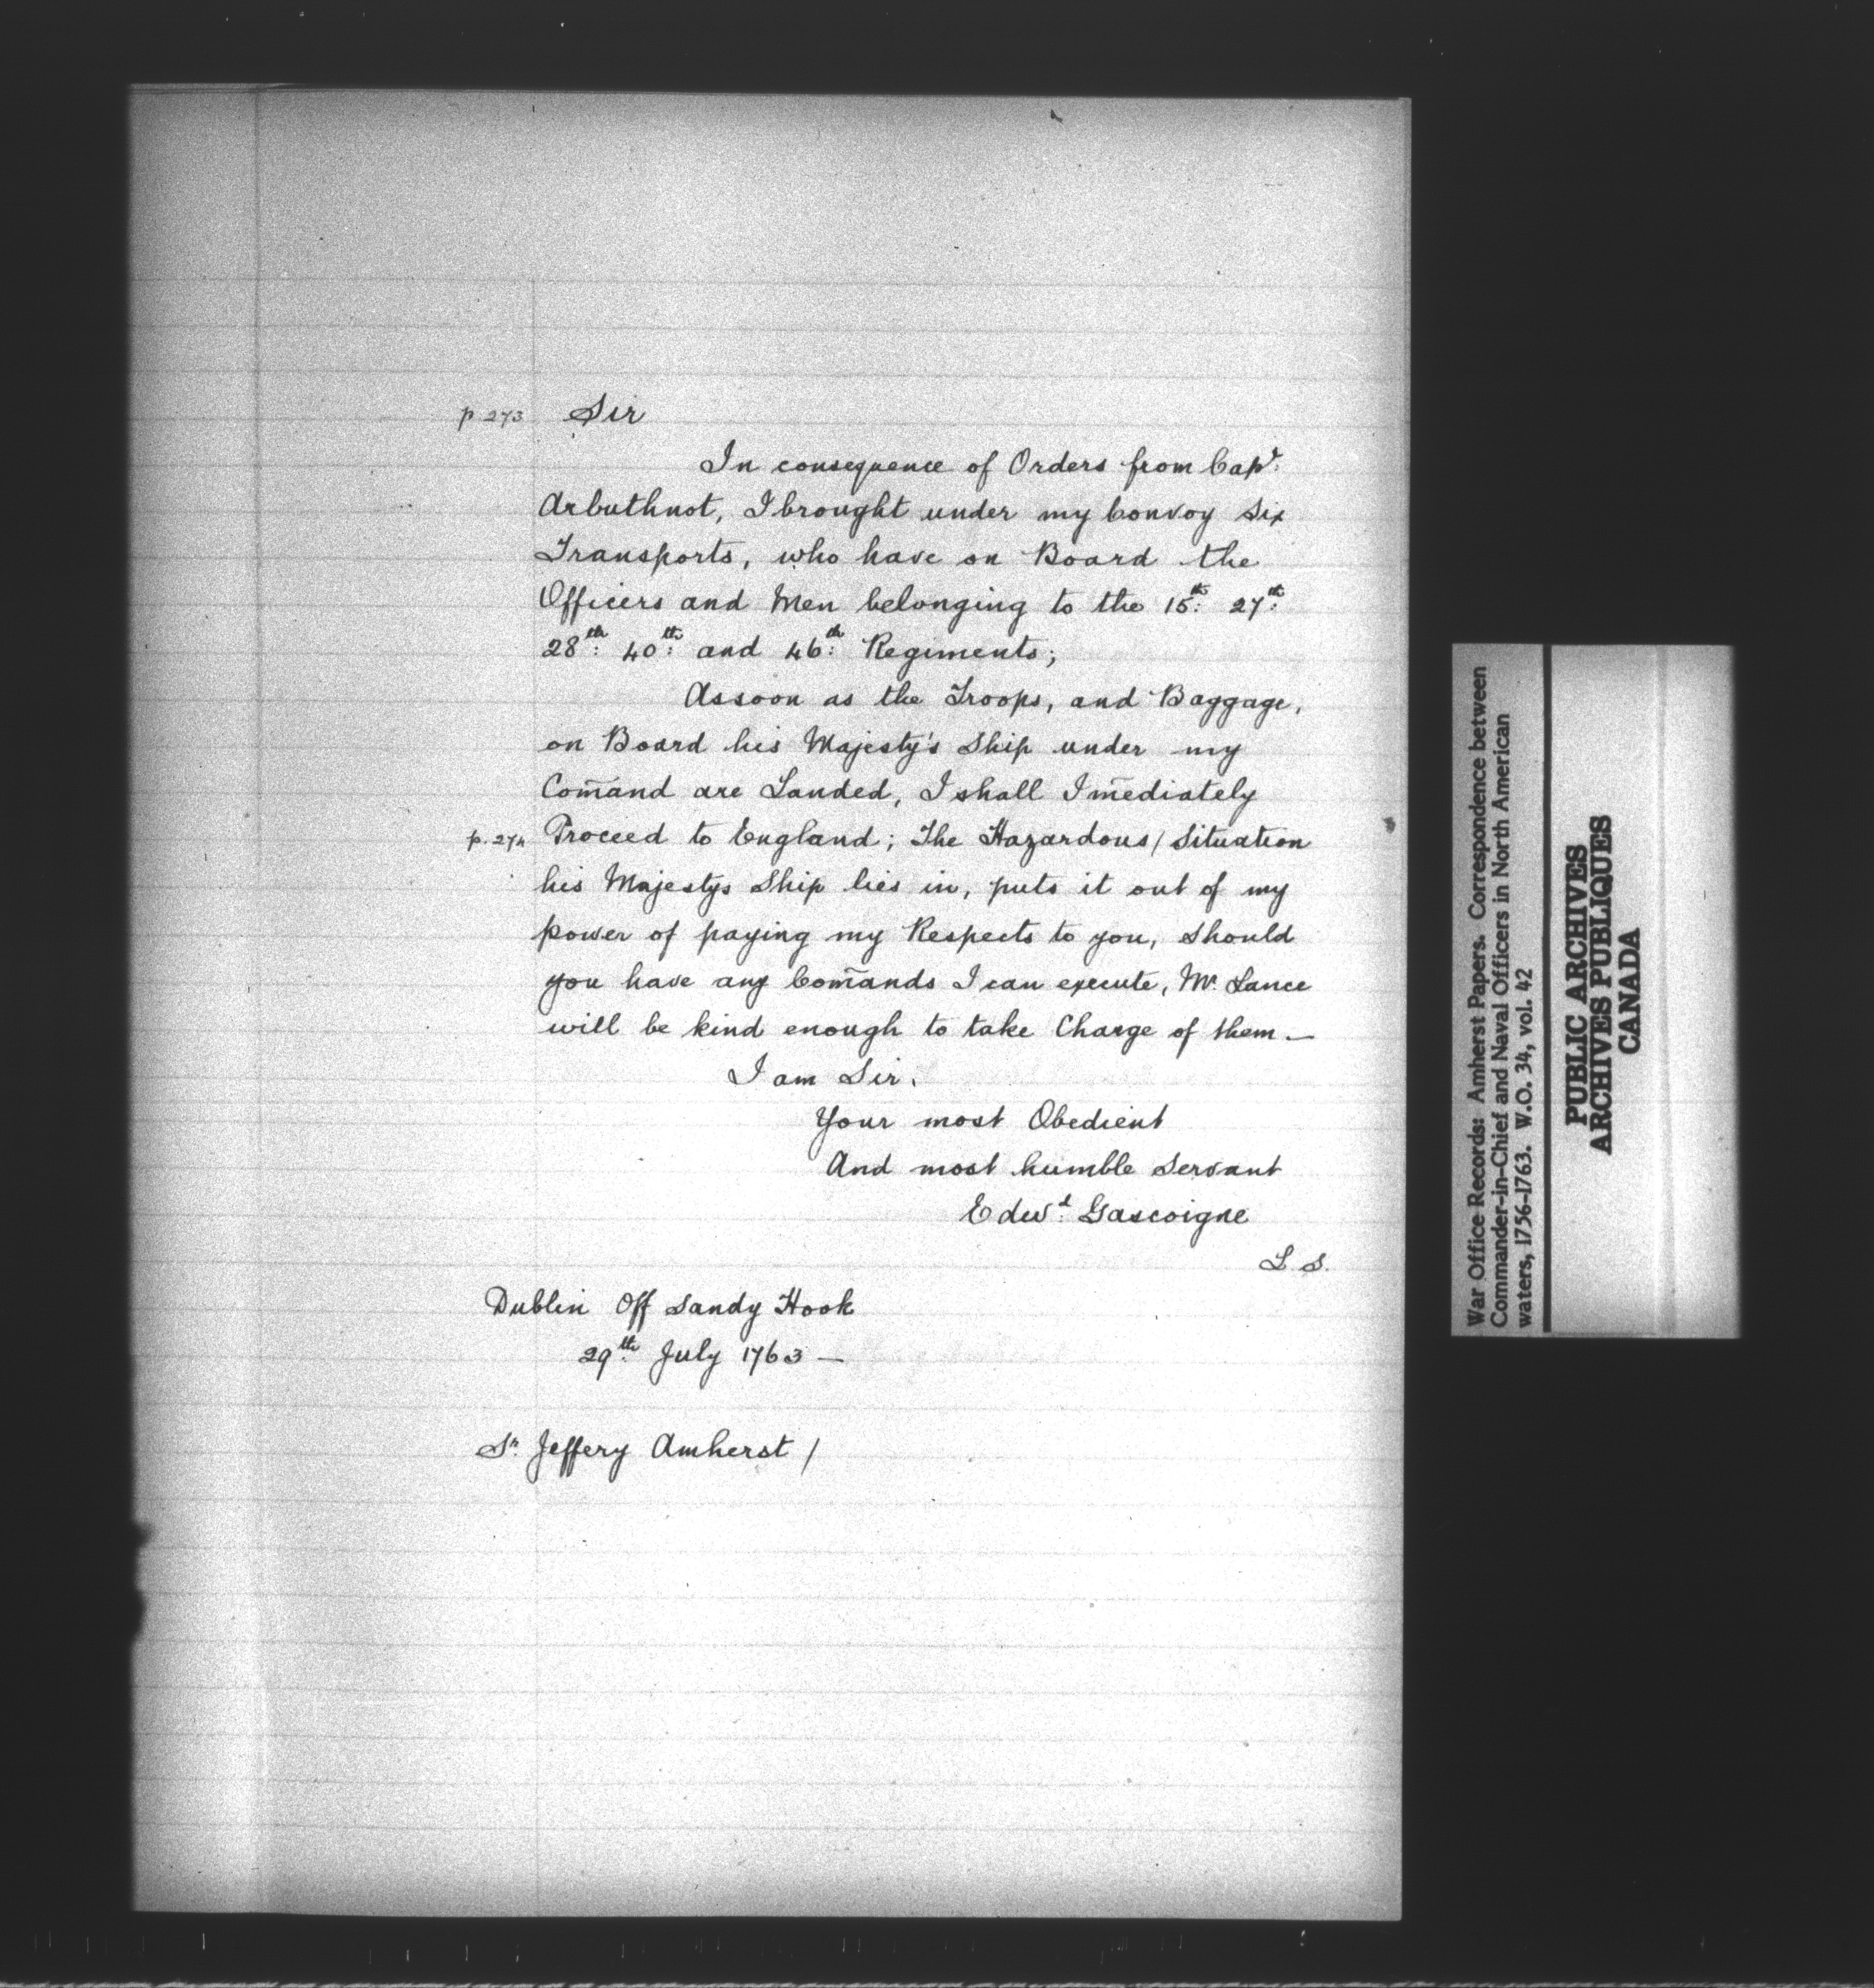 p 273 Sir
In consequence of Orders from Capt.
Arbuthnot, I brought under my Convoy Six
Transports, who have on Board the
Officers and Men belonging to the 15th: 27th:
28th: 40th: and 46th: Regiments;
Assoon as the Troops, and Baggage,
on Board his Majesty's Ship under my
Com̄and are Landed, I shall Im̄ediately
p. 274 Proceed to England; The Hazardous / Situation
his Majestys Ship lies in, puts it out of my
power of paying my Respects to you, should
you have any Com̄ands I can execute, Mr. Lance
will be kind enough to take Charge of them. —
I am Sir.
Your most Obedient
And most humble Servant
Edwd: Gascoigne
L. S.
Dublin Off Sandy Hook
29th: July 1763 —
Sr. Jeffery Amherst /
War Office Records: Amherst Papers. Correspondence between
Commander-in-Chief and Naval Officers in North American
waters, 1756-1763. W.O. 34, vol. 42
PUBLIC ARCHIVES
ARCHIVES PUBLIQUES
CANADA